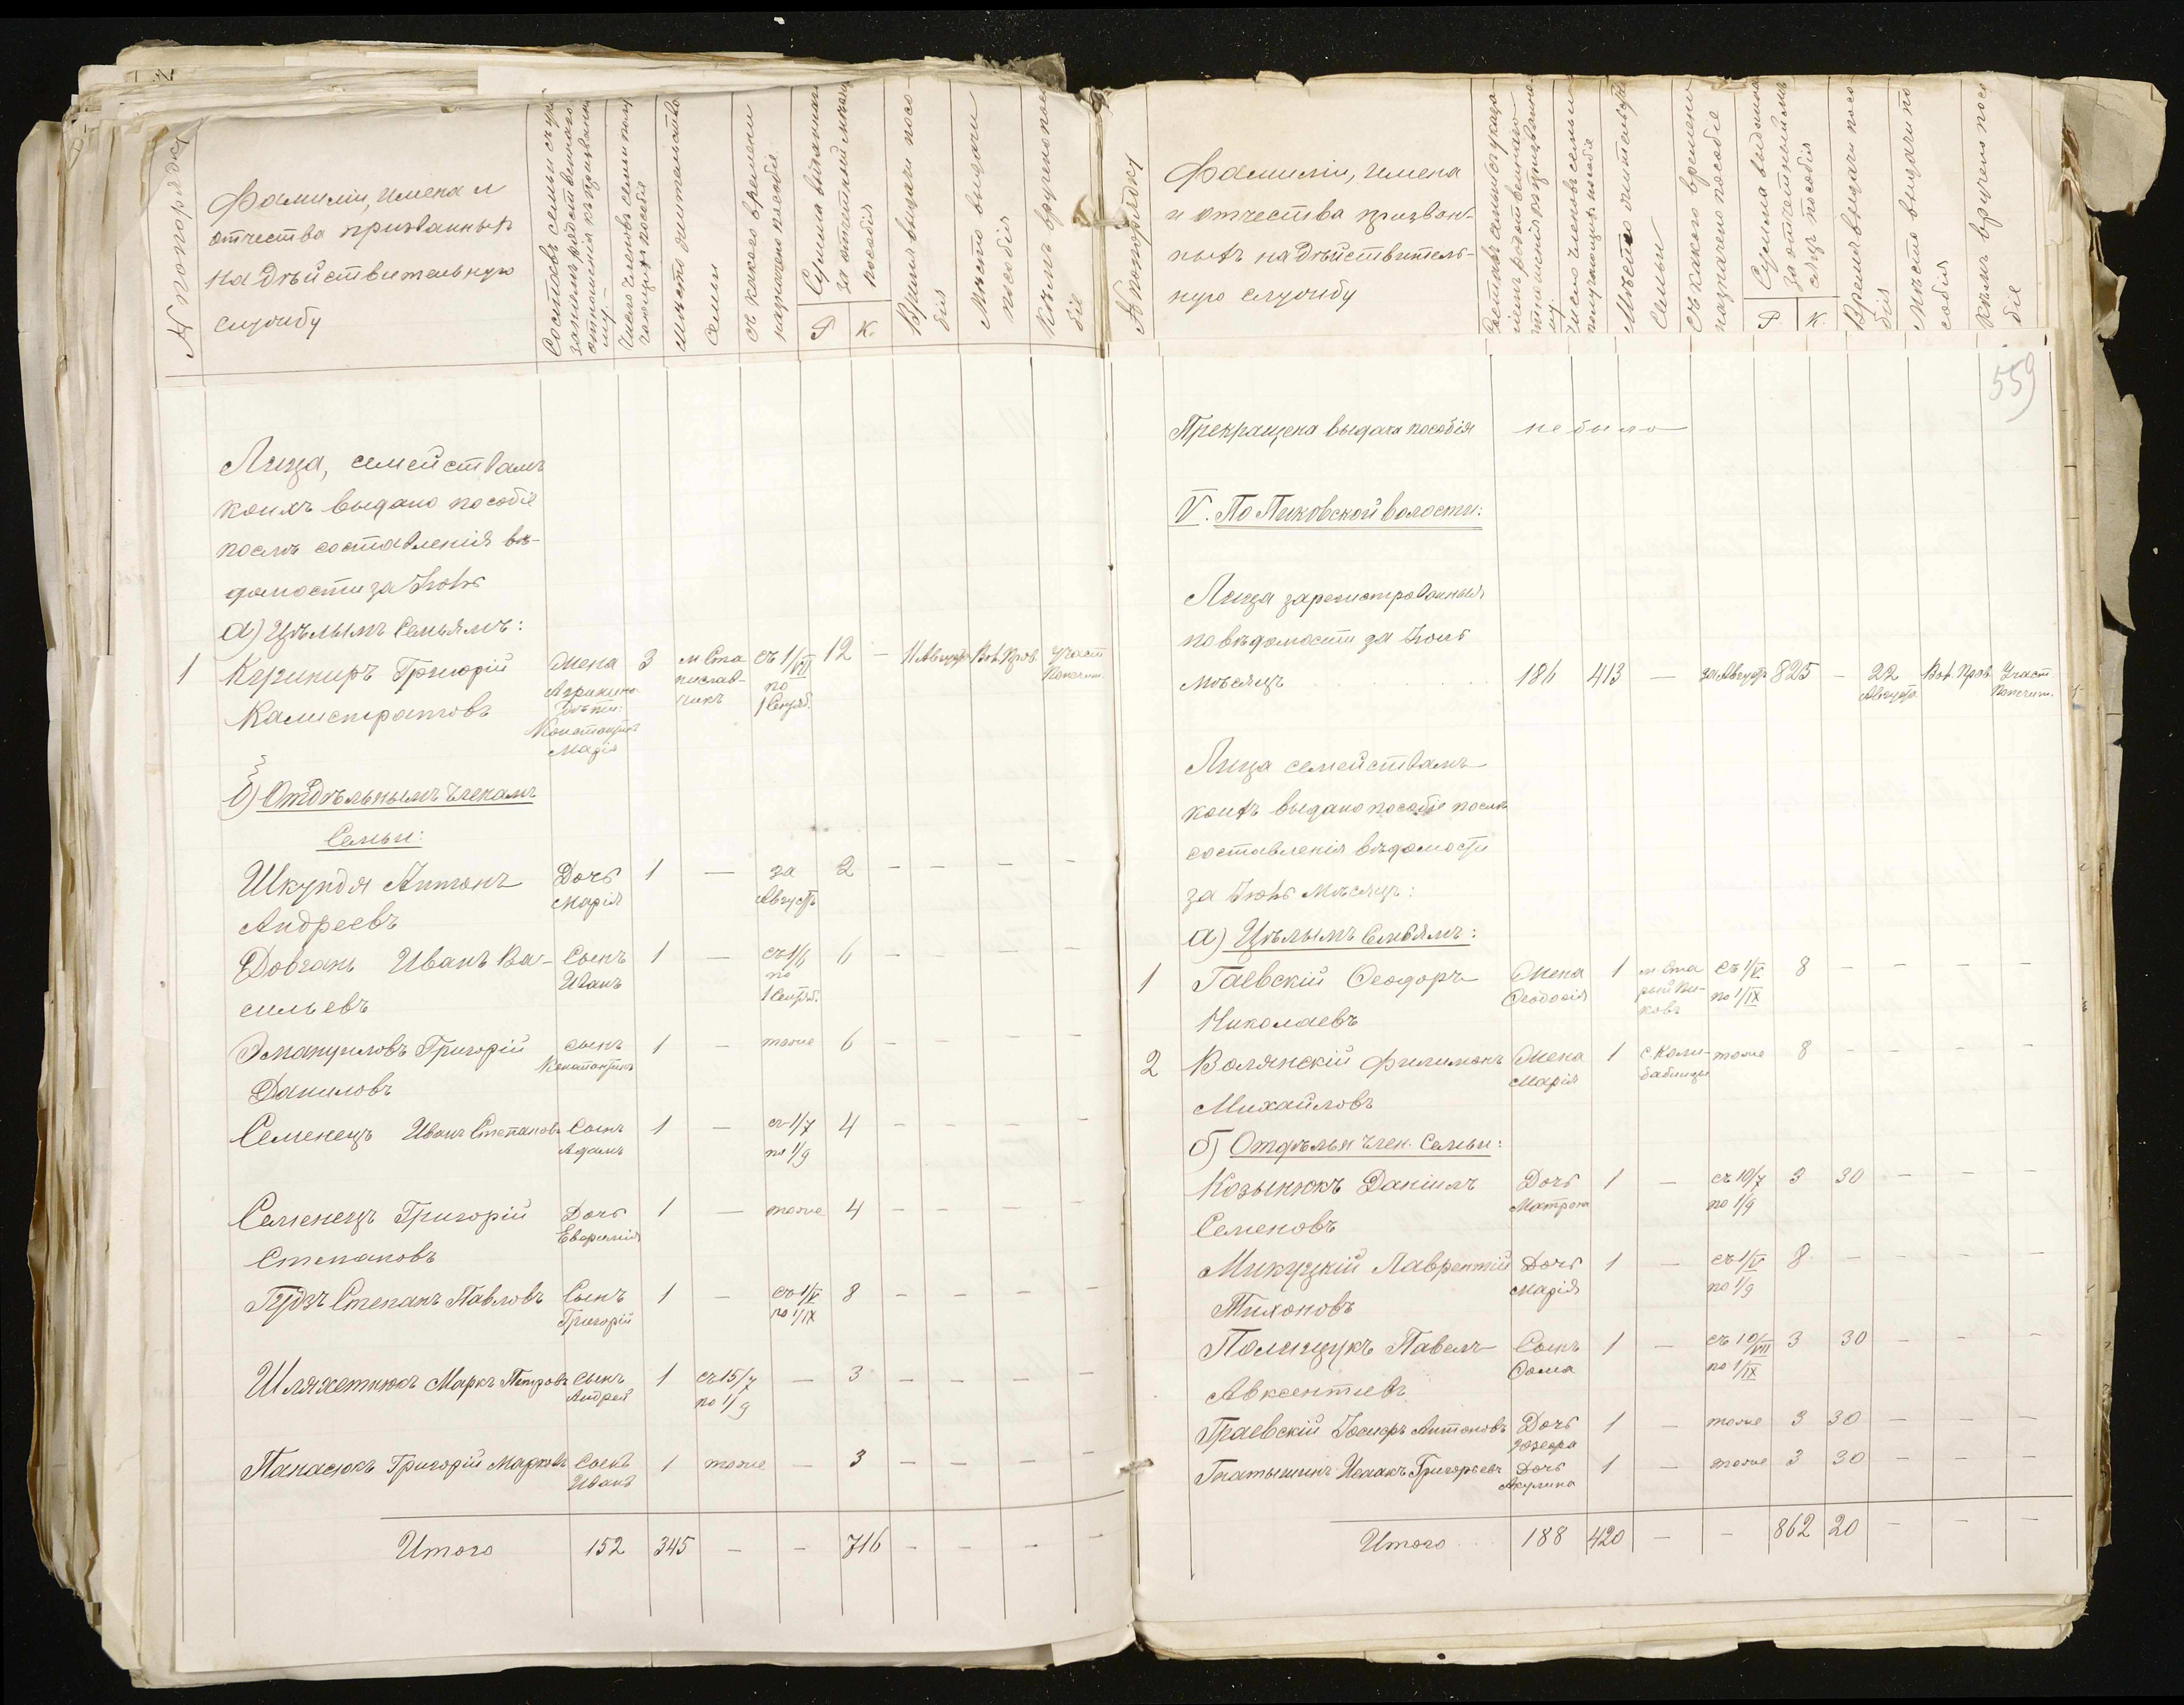 № по порядку
Фамиліи, имена и
отчества призванныхъ
на Дѣйствительную
службу
Число членовъ семьи полу
чающихъ пособія
мѣсто жительства
семьи
съ какого времени
назначено пособіе
Сумма выданная
за отчетный мѣсяцъ
пособія
Р К.
Время выдачи посо-
бія
Мѣсто выдачи
пособія
Кѣмъ вручено посо
біе
Лица, семействамъ
коихъ выдано пособіе
послѣ составленія вѣ-
домости за Іюль
а) Цѣлымъ Семьямъ:
1 Кушниръ Григорій Жена 3 м Ста съ 1/VI 12 — 11 Августа Вол. Прав. Участ
Калистратовъ Дѣти: по 1 Сентяб. Попечит.
Константинъ
Марія
б) Отдѣльнымъ членамъ
Семьи:
Шкундя Антонъ Дочь 1 — за 2 — — — —
Андреевъ Марія Августъ
Довгань Иванъ Ва- Сынъ 1 — съ 1/6 6 — — — —
сильевъ Иванъ по 1 Сентяб.
Эмануиловъ Григорій сынъ 1 — тоже 6 — — — —
Даниловъ Константинъ
Семенецъ Иванъ Степановъ Сынъ 1 — съ 1/7 4 — — — —
Адамъ по 1/9
Семенецъ Григорій Дочь 1 — тоже 4 — — — —
Степановъ Евфимія
Гудзъ Степанъ Павловъ Сынъ 1 — съ 1/V 8 — — — —
Григорій по 1/IX
Шляхетнюкъ Маркъ Петровъ сынъ 1 съ 15/7 — 3 — — — —
Андрей по 1/9
Панасюкъ Григорій Марковъ Сынъ 1 тоже — 3 — — — —
Иванъ
Итого 152 345 — — 716 — — — —
№ по порядку
Фамиліи, имена
и отчества призван-
ныхъ на Дѣйствитель-
ную службу
Число членовъ семьи
получающихъ пособіе
Мѣсто жительства
Семьи
Съ какого времени
назначено пособіе
Сумма выданная
за отчетный мѣ
сяцъ пособія
Р. К.
Время выдачи посо
бія
Мѣсто выдачи по
собія
Кѣмъ вручено посо
біе
559
Прекращена выдача пособія не было
V. По Пиковской волости:
Лица зарегистрованныя
по вѣдомости за Іюль
мѣсяцъ 186 413 — за Августъ 825 — 22 Вол. Прав. Участ
Августа Попечит.
Лица семействамъ
коихъ выдано пособіе послѣ
составленія вѣдомости
за Іюль мѣсяцъ:
а) Цѣлымъ Семьямъ:
1 Гаевскій Феодоръ Жена 1 м Ста съ 1/V 8 — — — —
Николаевъ Феодосія рый Пи- по 1/IX
ковъ
2 Волянскій Филимонъ Жена 1 с. Коли- тоже 8 — — — —
Михайловъ Марія бабинцы
б) Отдѣльн член. Семьи:
Козынюкъ Даніилъ Дочь 1 — съ 10/7 3 30 — — —
Семеновъ Матрона по 1/9
Микуцкій Лаврентій Дочь 1 — съ 1/V 8 — — — —
Тихоновъ Марія по 1/9
Полищукъ Павелъ Сынъ 1 — съ 10/VII 3 30 — — —
Авксентіевъ Фома по 1/IX
Граевскій Іосифъ Антоновъ Дочь 1 — тоже 3 30 — — —
Юзефа
Гнатышинъ Исаакъ Григорьевъ Дочь 1 — тоже 3 30 — — —
Акулина
Итого 188 420 — — 862 20 — — —